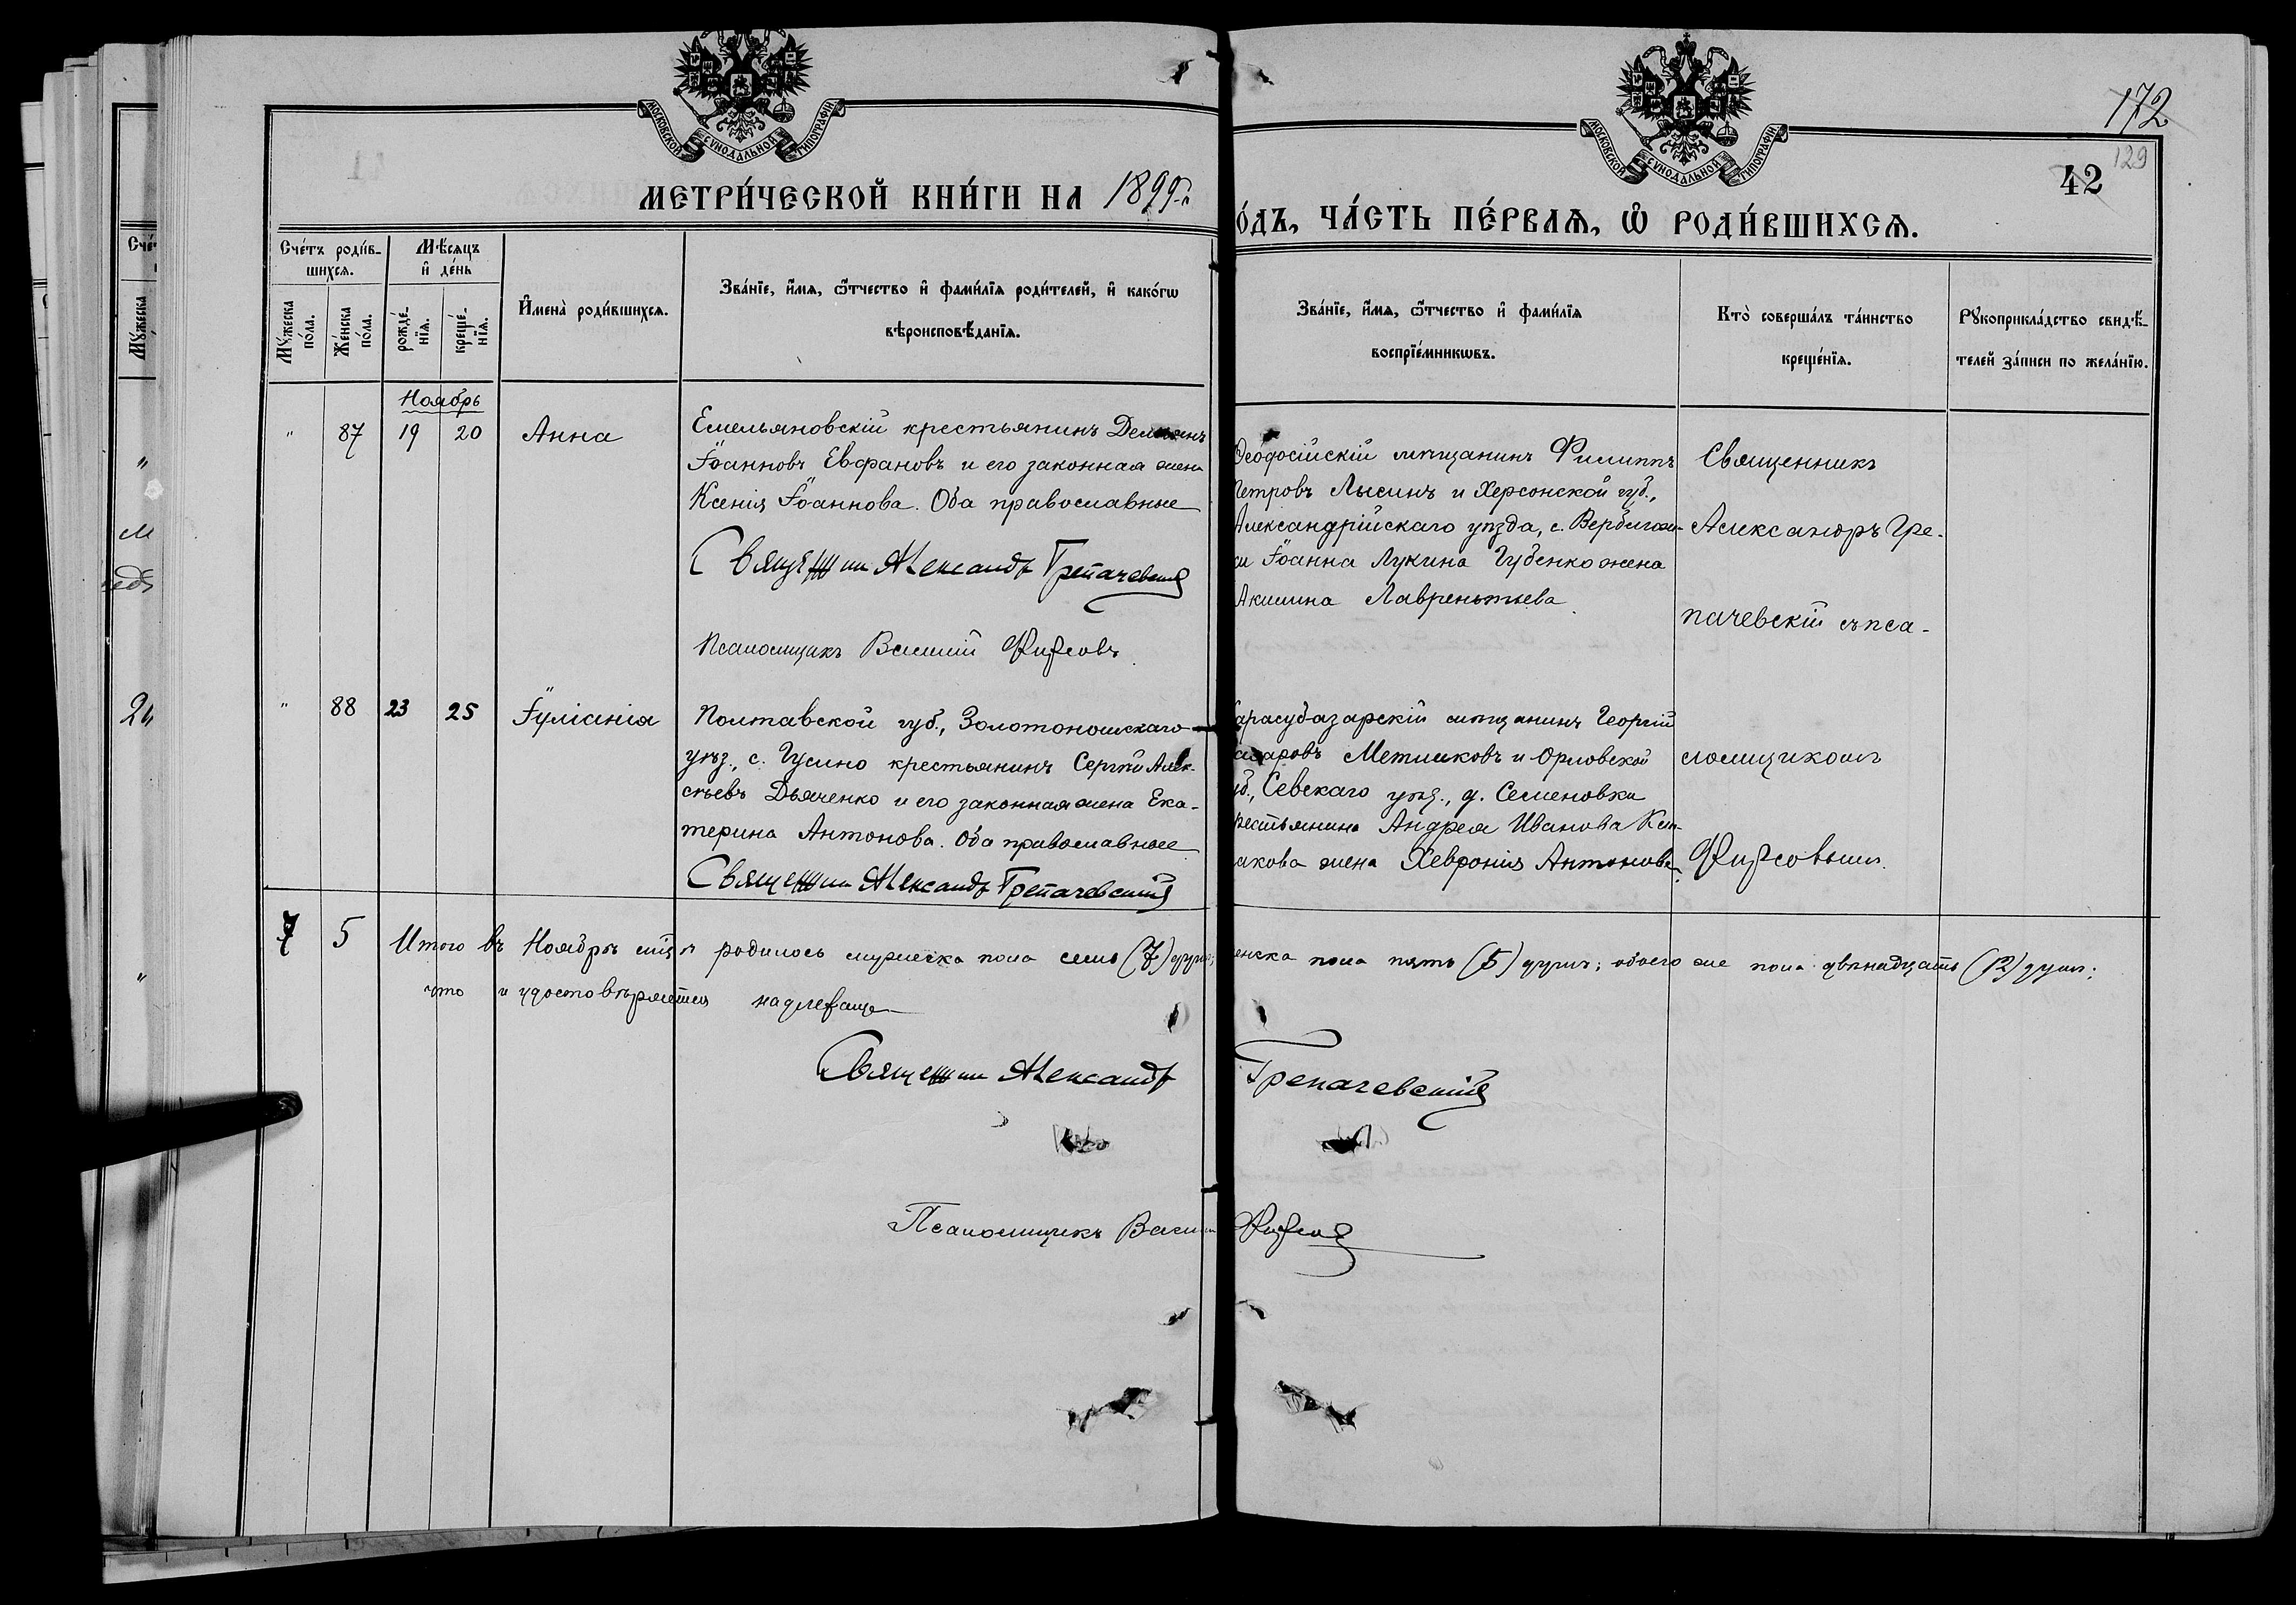 МОСКОВСКОЙ СѴНОДАЛЬНОЙ ТИПОГРАФІИ
МОСКОВСКОЙ СѴНОДАЛЬНОЙ ТИПОГРАФІИ
172
129
42
МЕТРИ́ЧЕСКОЙ КНИ́ГИ НА 1899 г.
О́ДЪ, ЧА́СТЬ ПЕ́РВАѦ, Ѡ҆ РОДИ́ВШИХСѦ.
Сче́тъ роди́в-
шихсѧ.
Мѣ́сяцъ
и҆ де́нь
Мꙋ́жеска
по́ла.
Же́нска
по́ла.
рожде́-
нїѧ.
креще́-
нїѧ.
И҆мена̀ роди́вшихсѧ.
Зва́нїе, и҆́мѧ, ѻ҆́тчество и҆ фами́лїѧ роди́телей, и҆ како́гѡ
вѣроисповѣ́данїѧ.
Зва́нїе, и҆́мѧ, ѻ҆́тчество и҆ фами́лїѧ
воспрїе́мникѡвъ.
Кто̀ соверша́лъ та́инство
креще́нїѧ.
Рꙋкоприкла́дство свидѣ́-
телей за́писи по жела́нїю.
Ноябрь
" 87 19 20 Анна
Емельяновскій крестьянинъ Демьянъ
Іоанновъ Евфановъ и его законная жена
Ксенія Іоаннова. Оба православные
Священникъ Александръ Грепачевскій
Псаломщикъ Василій Фирсовъ.
Ѳеодосійскій мѣщанинъ Филиппъ
Петровъ Лысинъ и Херсонской губ.,
Александрійскаго уѣзда, с.
Іоанна Лукина Губенко жена
Акилина Лаврентьева.
Священникъ
Александръ Гре-
пачевскій съ пса-
" 88 23 25 Іуліанія
Полтавской губ., Золотоношскаго
уѣз., с. Гусино крестьянинъ Сергій Алек-
сѣевъ Дьяченко и его законная жена Ека-
терина Антонова. Оба православные
Священникъ Александръ Грепачевскій
арасубазарскій мѣщанинъ Георгій
азаровъ Метликовъ и Орловской
уб., Севскаго уѣз., д. Семеновки
рестьянина Андрея Иванова
акова жена Хевронія Антонова.
ломщикомъ
Фирсовымъ.
7 5 Итого въ Ноябрѣ м-цѣ родилось мужеска пола семь (7) душъ; женска пола пять (5) душъ; обоего же пола двѣнадцать (12) душъ;
что и удостовѣряется надлежаще
Священникъ Александръ Грепачевскій
Псаломщикъ Василій Фирсовъ